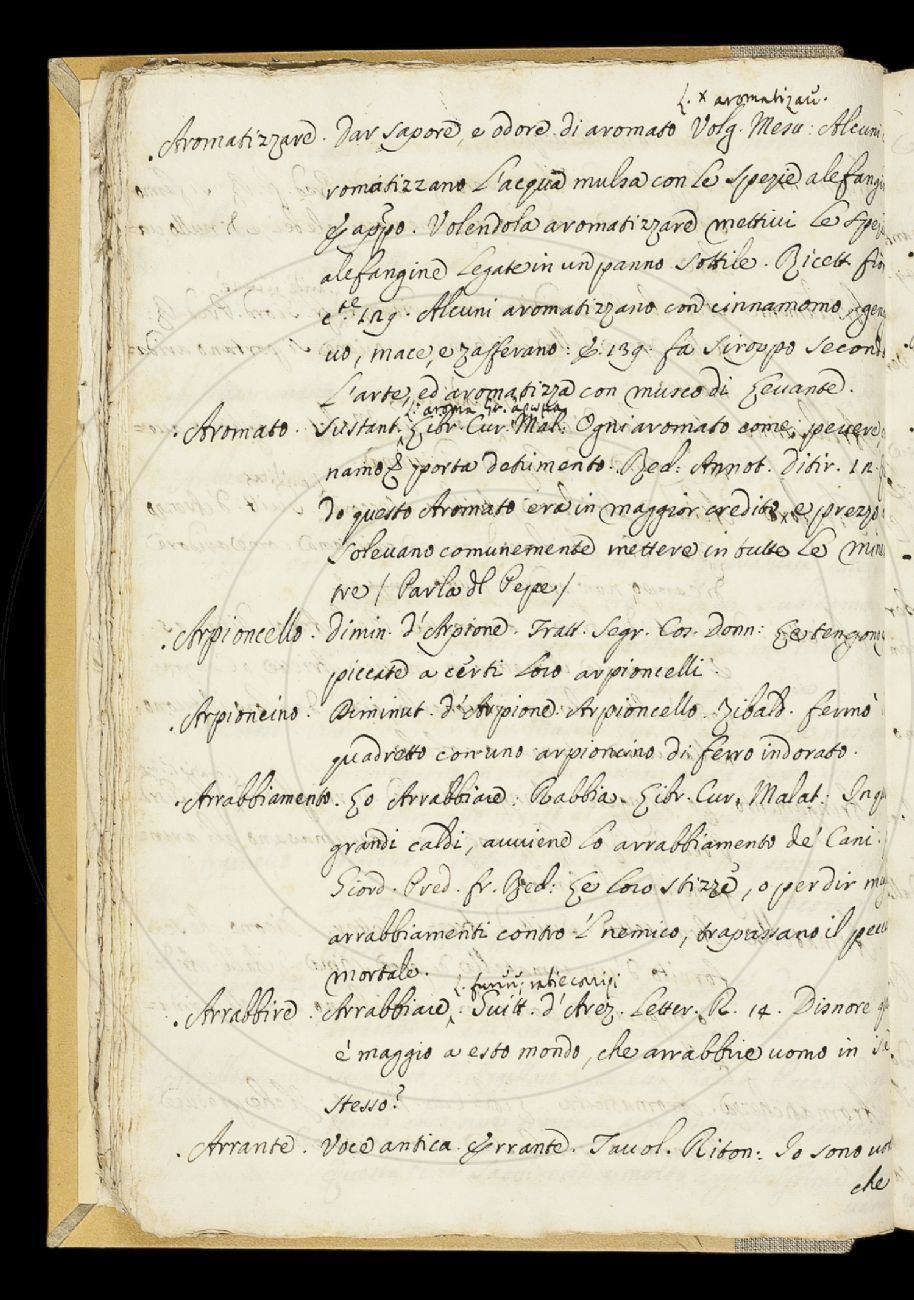 L. × aromatizau.
Aromatizzare. Dar sapore, e odore di aromato Volg. Mesu: Alcuni
romatizzano l'acqua mulsa con le spezie alefangi
E appo. Volendola aromatizzare mettivi le spe
alefangine legate in un panno sottile. Ricett. fior
e te 129. Alcuni aromatizzano con cinnamomo, gen
uo, mace, e zafferano: E 139. fa siroppo second
l'arte, ed aromatizza con musco di Levante.
L: aroma Gr. ἄρωμα
Aromato. Sustant. Libr. Cur. Mal: Ogni aromato come pevere
namo & porta detrimento. Red: Annot. Ditir. 12.
do questo Aromato era in maggior credito, e prezzo
solevano comunemente mettere in tutte le mine
tre / Parla dl Pepe /
Arpioncello. Dimin. d'Arpione. Tratt. Segr. Cos. Donn: Le tengono
piccate a certi loro arpioncelli.
Arpioncino. Diminut. d'Arpione. Arpioncello. Zibald. fermò
quadretto con uno arpioncino di ferro indorato.
Arrabbiamento. Lo Arrabbiare; Rabbia. Libr. Cur. Malat: In q
grandi caldi, avviene lo arrabbiamento de' Cani.
Giord. Pred. fr. Red: Le loro stizze, o per dir me
arrabbiamenti contro 'l nemico, trapassano il pecca
mortale.
Arrabbire. Arrabbiare. Guitt. d'Arez. Letter. R. 14. Disnore q
è maggio a esto mondo, che arrabbire uomo in se
stesso?
Arrante. Voce antica. Errante. Tavol. Riton: Io sono uo
che